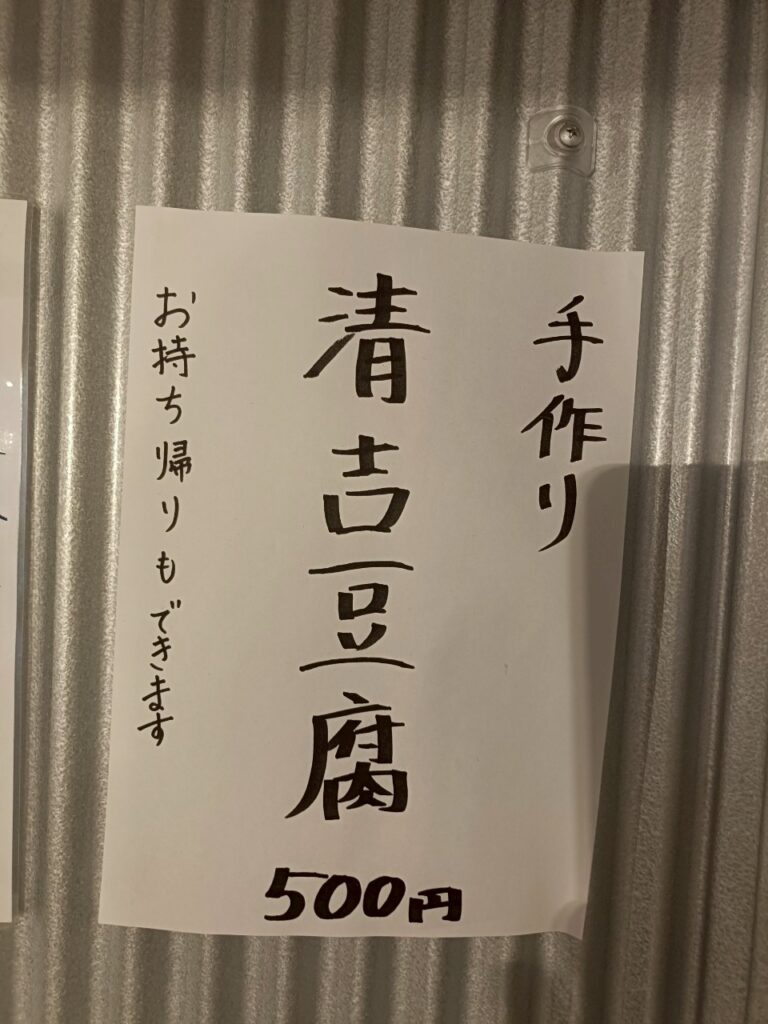 手作り
清吉豆腐
500円
お持ち帰りもできます